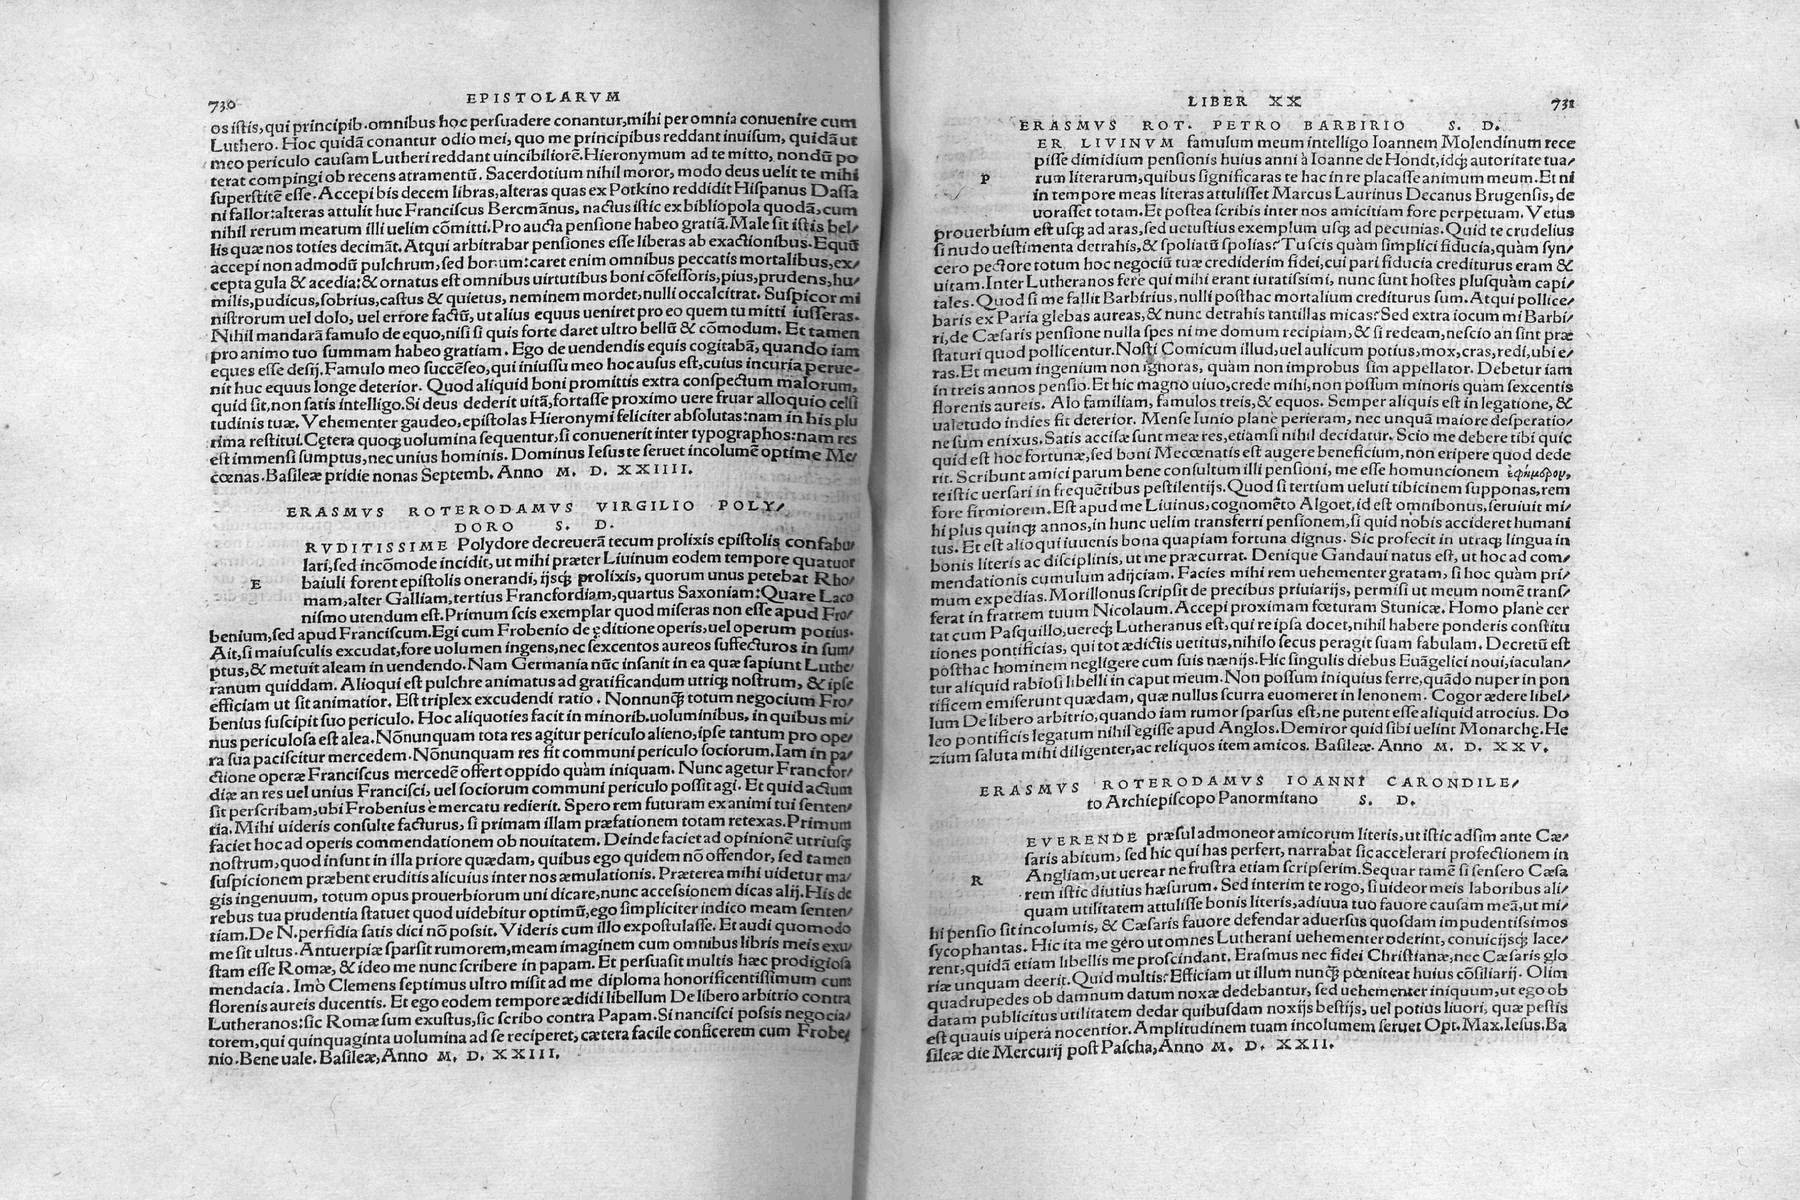 730
EPISTOLARVM
os istis, qui principib. omnibus hoc persuadere conantur, mihi per omnia conuenire cum
Luthero. Hoc quidã conantur odio mei, quo me principibus reddant inuisum, quidã ut
meo periculo causam Lutheri reddant uincibiliorē. Hieronymum ad te mitto, nondũ po
terat compingi ob recens atramentũ. Sacerdotium nihil moror, modo deus uelit te mihi
superstitē esse. Accepi bis decem libras, alteras quas ex Potkino reddidit Hispanus Dassa
ni fallor: alteras attulit huc Franciscus Bercmãnus, nactus istic ex bibliopola quodã, cum
nihil rerum mearum illi uelim cõmitti. Pro aucta pensione habeo gratiã. Male sit istis bel/
lis quæ nos toties decimãt. Atqui arbitrabar pensiones esse liberas ab exactionibus. Equũ
accepi non admodũ pulchrum, sed bonum: caret enim omnibus peccatis mortalibus, ex/
cepta gula & acedia: & ornatus est omnibus uirtutibus boni cõfessoris, pius, prudens, hu/
milis, pudicus, sobrius, castus & quietus, neminem mordet, nulli occalcitrat. Suspicor mi
nistrorum uel dolo, uel errore factũ, ut alius equus ueniret pro eo quem tu mitti iusseras.
Nihil mandarã famulo de equo, nisi si quis forte daret ultro bellũ & cõmodum. Et tamen
pro animo tuo summam habeo gratiam. Ego de uendendis equis cogitabã, quando iam
eques esse desij. Famulo meo succēseo, qui iniussu meo hoc ausus est, cuius incuria perue-
nit huc equus longe deterior. Quod aliquid boni promittis extra conspectum malorum,
quid sit, non satis intelligo. Si deus dederit uitã, fortasse proximo uere fruar alloquio celsi
tudinis tuæ. Vehementer gaudeo, epistolas Hieronymi feliciter absolutas: nam in his plu
rima restitui. Cętera quoqꝫ uolumina sequentur, si conuenerit inter typographos: nam res
est immensi sumptus, nec unius hominis. Dominus Iesus te seruet incolumē optime Me/
cœnas. Basileæ pridie nonas Septemb. Anno M. D. XXIIII.
ERASMVS ROTERODAMVS VIRGILIO POLY/
DORO S. D.
E
RVDITISSIME Polydore decreuerã tecum prolixis epistolis confabu/
lari, sed incõmode incidit, ut mihi præter Liuinum eodem tempore quatuor
baiuli forent epistolis onerandi, ijsqꝫ prolixis, quorum unus petebat Rho/
mam, alter Galliam, tertius Francfordiam, quartus Saxoniam: Quare Laco
nismo utendum est. Primum scis exemplar quod miseras non esse apud Fro/
benium, sed apud Franciscum. Egi cum Frobenio de ęditione operis, uel operum potius.
Ait, si maiusculis excudat, fore uolumen ingens, nec sexcentos aureos suffecturos in sum/
ptus, & metuit aleam in uendendo. Nam Germania nũc insanit in ea quæ sapiunt Luthe/
ranum quiddam. Alioqui est pulchre animatus ad gratificandum utriqꝫ nostrum, & ipse
efficiam ut sit animatior. Est triplex excudendi ratio. Nonnunqꝫ totum negocium Fro/
benius suscipit suo periculo. Hoc aliquoties facit in minorib. uoluminibus, in quibus mi/
nus periculosa est alea. Nõnunquam tota res agitur periculo alieno, ipse tantum pro ope/
ra sua paciscitur mercedem. Nõnunquam res fit communi periculo sociorum. Iam in pa/
ctione operæ Franciscus mercedē offert oppido quàm iniquam. Nunc agetur Francfor/
diæ an res uel unius Francisci, uel sociorum communi periculo possit agi. Et quid actum
sit perscribam, ubi Frobenius è mercatu redierit. Spero rem futuram ex animi tui senten/
tia. Mihi uideris consulte facturus, si primam illam præfationem totam retexas. Primum
faciet hoc ad operis commendationem ob nouitatem. Deinde faciet ad opinionē utriusqꝫ
nostrum, quod insunt in illa priore quædam, quibus ego quidem nõ offendor, sed tamen
suspicionem præbent eruditis alicuius inter nos æmulationis. Præterea mihi uidetur ma/
gis ingenuum, totum opus prouerbiorum uni dicare, nunc accessionem dicas alij. His de
rebus tua prudentia statuet quod uidebitur optimũ, ego simpliciter indico meam senten/
tiam. De N. perfidia satis dici nõ possit. Videris cum illo expostulasse. Et audi quomodo
me sit ultus. Antuerpiæ sparsit rumorem, meam imaginem cum omnibus libris meis exu/
stam esse Romæ, & ideo me nunc scribere in papam. Et persuasit multis hæc prodigiosa
mendacia. Imò Clemens septimus ultro misit ad me diploma honorificentissimum cum
florenis aureis ducentis. Et ego eodem tempore ædidi libellum De libero arbitrio contra
Lutheranos: sic Romæ sum exustus, sic scribo contra Papam. Si nancisci possis negocia/
torem, qui quinquaginta uolumina ad se reciperet, cætera facile conficerem cum Frobe/
nio. Bene uale. Basileæ, Anno M. D. XXIII.
LIBER XX
731
ERASMVS ROT. PETRO BARBIRIO S. D.
P
ER LIVINVM famulum meum intelligo Ioannem Molendinum rece
pisse dimidium pensionis huius anni à Ioanne de Hondt, idqꝫ autoritate tua/
rum literarum, quibus significaras te hac in re placasse animum meum. Et ni
in tempore meas literas attulisset Marcus Laurinus Decanus Brugensis, de
uorasset totam. Et postea scribis inter nos amicitiam fore perpetuam. Vetus
prouerbium est usqꝫ ad aras, sed uetustius exemplum usqꝫ ad pecunias. Quid te crudelius
si nudo uestimenta detrahis, & spoliatũ spolias? Tu scis quàm simplici fiducia, quàm syn/
cero pectore totum hoc negociũ tuæ crediderim fidei, cui pari fiducia crediturus eram &
uitam. Inter Lutheranos fere qui mihi erant iuratissimi, nunc sunt hostes plusquàm capi/
tales. Quod si me fallit Barbirius, nulli posthac mortalium crediturus sum. Atqui pollice/
baris ex Paria glebas aureas, & nunc detrahis tantillas micas? Sed extra iocum mi Barbi/
ri, de Cæsaris pensione nulla spes ni me domum recipiam, & si redeam, nescio an sint præ
staturi quod pollicentur. Nosti Comicum illud, uel aulicum potius, mox, cras, redi, ubi e/
ras. Et meum ingenium non ignoras, quàm non improbus sim appellator. Debetur iam
in treis annos pensio. Et hic magno uiuo, crede mihi, non possum minoris quàm sexcentis
florenis aureis. Alo familiam, famulos treis, & equos. Semper aliquis est in legatione, &
ualetudo indies fit deterior. Mense Iunio plane perieram, nec unquã maiore desperatio/
ne sum enixus. Satis accisæ sunt meæ res, etiamsi nihil decidatur. Scio me debere tibi quic
quid est hoc fortunæ, sed boni Mecœnatis est augere beneficium, non eripere quod dede
rit. Scribunt amici parum bene consultum illi pensioni, me esse homuncionem ἐφήμερον,
te istic uersari in frequētibus pestilentijs. Quod si tertium ueluti tibicinem supponas, rem
fore firmiorem. Est apud me Liuinus, cognomēto Algoet, id est omnibonus, seruiuit mi/
hi plus quinqꝫ annos, in hunc uelim transferri pensionem, si quid nobis accideret humani
tus. Et est alioqui iuuenis bona quapiam fortuna dignus. Sic profecit in utraqꝫ lingua in
bonis literis ac disciplinis, ut me præcurrat. Denique Gandaui natus est, ut hoc ad com/
mendationis cumulum adijciam. Facies mihi rem uehementer gratam, si hoc quàm pri/
mum expedias. Morillonus scripsit de precibus priuiarijs, permisi ut meum nomē trans/
ferat in fratrem tuum Nicolaum. Accepi proximam fœturam Stunicæ. Homo plane cer
tat cum Pasquillo, uereqꝫ Lutheranus est, qui re ipsa docet, nihil habere ponderis constitu
tiones pontificias, qui tot ædictis uetitus, nihilo secus peragit suam fabulam. Decretũ est
posthac hominem negligere cum suis nænijs. Hic singulis diebus Euãgelici noui, iaculan/
tur aliquid rabiosi libelli in caput meum. Non possum iniquius ferre, quãdo nuper in pon
tificem emiserunt quædam, quæ nullus scurra euomeret in lenonem. Cogor ædere libel/
lum De libero arbitrio, quando iam rumor sparsus est, ne putent esse aliquid atrocius. Do
leo pontificis legatum nihil egisse apud Anglos. Demiror quid sibi uelint Monarchę. He
zium saluta mihi diligenter, ac reliquos item amicos. Basileæ. Anno M. D. XXV.
ERASMVS ROTERODAMVS IOANNI CARONDILE/
to Archiepiscopo Panormitano S. D.
R
EVERENDE præsul admoneor amicorum literis, ut istic adsim ante Cæ/
saris abitum, sed hic qui has perfert, narrabat sic accelerari profectionem in
Angliam, ut uerear ne frustra etiam scripserim. Sequar tamē si sensero Cæsa
rem istic diutius hæsurum. Sed interim te rogo, si uideor meis laboribus ali/
quam utilitatem attulisse bonis literis, adiuua tuo fauore causam meã, ut mi/
hi pensio sit incolumis, & Cæsaris fauore defendar aduersus quosdam impudentissimos
sycophantas. Hic ita me gero ut omnes Lutherani uehementer oderint, conuicijsqꝫ lace/
rent, quidã etiam libellis me proscindant. Erasmus nec fidei Christianæ, nec Cæsaris glo
riæ unquam deerit. Quid multis? Efficiam ut illum nunqꝫ pœniteat huius cõsiliarij. Olim
quadrupedes ob damnum datum noxæ dedebantur, sed uehementer iniquum, ut ego ob
datam publicitus utilitatem dedar quibusdam noxijs bestijs, uel potius liuori, quæ pestis
est quauis uipera nocentior. Amplitudinem tuam incolumem seruet Opt. Max. Iesus. Ba
sileæ die Mercurij post Pascha, Anno M. D. XXII.